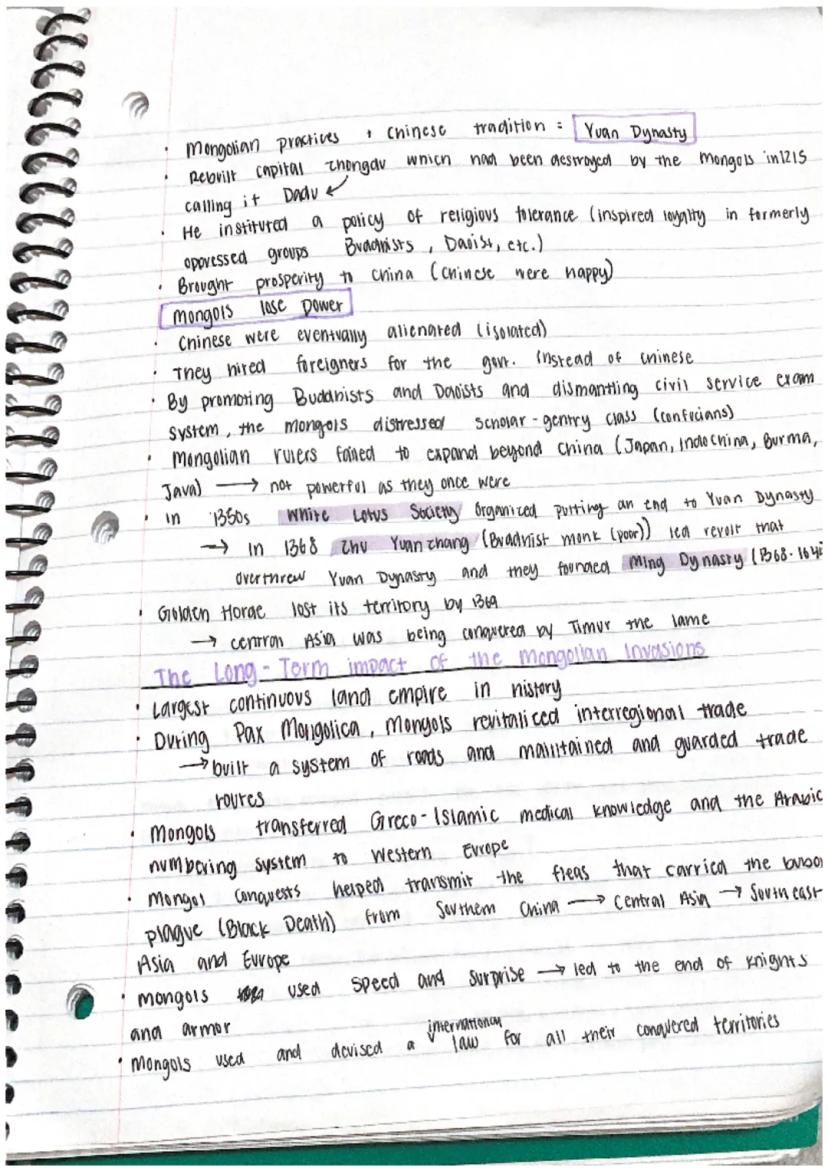 • Mongolian practices + Chinese tradition = Yuan Dynasty
• Rebuilt capital Zhongdu which had been destroyed by the Mongols in 1215
calling it Dadu ↙
• He instituted a policy of religious tolerance (inspired loyalty in formerly
oppressed groups Buddhists, Daoist, etc.)
• Brought prosperity to China (Chinese were happy)
Mongols lose power
• Chinese were eventually alienated (isolated)
• They hired foreigners for the govt. instead of chinese
• By promoting Buddhists and Daoists and dismantling civil service exam
system, the mongols distressed scholar-gentry class (confucians)
• Mongolian rulers failed to expand beyond China (Japan, Indochina, Burma,
Java) → not powerful as they once were
• in 1350s White Lotus Society organized putting an end to Yuan Dynasty
→ In 1368 Zhu Yuanzhang (Buddhist monk (poor)) led revolt that
overthrew Yuan Dynasty and they founded Ming Dynasty (1368-164
• Golden Horde lost its territory by 1369
→ central Asia was being conquered by Timur the lame
The Long-Term impact of the mongolian Invasions
• Largest continuous land empire in history
• During Pax Mongolica, Mongols revitalized interregional trade
→ built a system of roads and maintained and guarded trade
routes
• Mongols transferred Greco-Islamic medical knowledge and the Arabic
numbering system to Western Europe
• Mongol conquests helped transmit the fleas that carried the
plague (Black Death) from Southern China → Central Asia → Southeast
Asia and Europe
• mongols used speed and surprise → led to the end of knights
and armor
• Mongols used and devised a international law for all their conquered territories